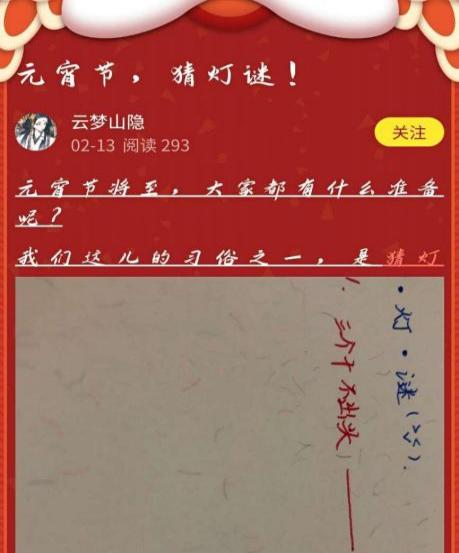 元宵节，猜灯谜！
云梦山隐
关注
02-13 阅读 293
元宵节将至，大家都有什么准备
呢？
我们这儿的习俗之一，是猜灯
·灯·谜
1. 三个十不出头）——